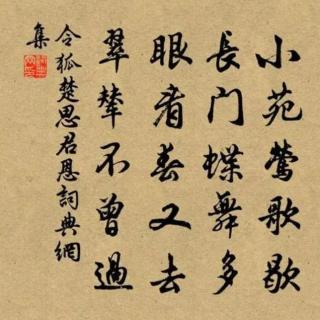 小苑莺歌歇
长门蝶舞多
眼看春又去
翠辇不曾過
令狐楚思君恩詞典網
集